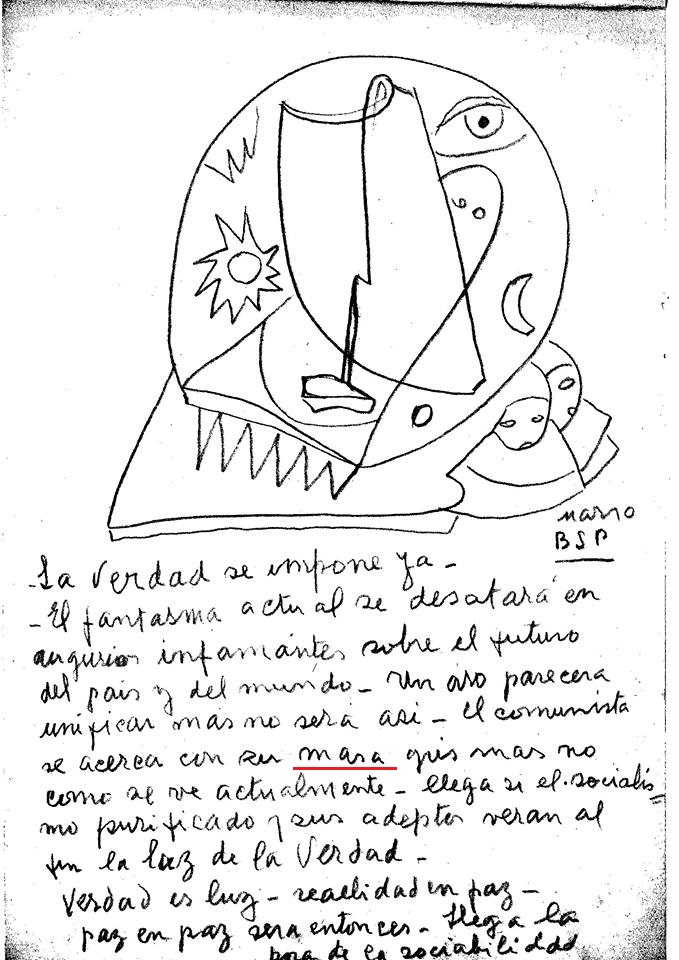 marzo
BSP
- La Verdad se impone ya -
- El fantasma actual se desatará en
augurios infamantes sobre el futuro
del pais y del mundo - Un aso parecera
unificar mas no sera asi - El comunista
se acerca con su masa gris mas no
como se ve actualmente - llega si el socialis=
mo purificado y sus adeptos veran al
fin la luz de la Verdad -
Verdad es luz - realidad en paz -
paz en paz sera entonces - llega la
hora de la sociabilidad